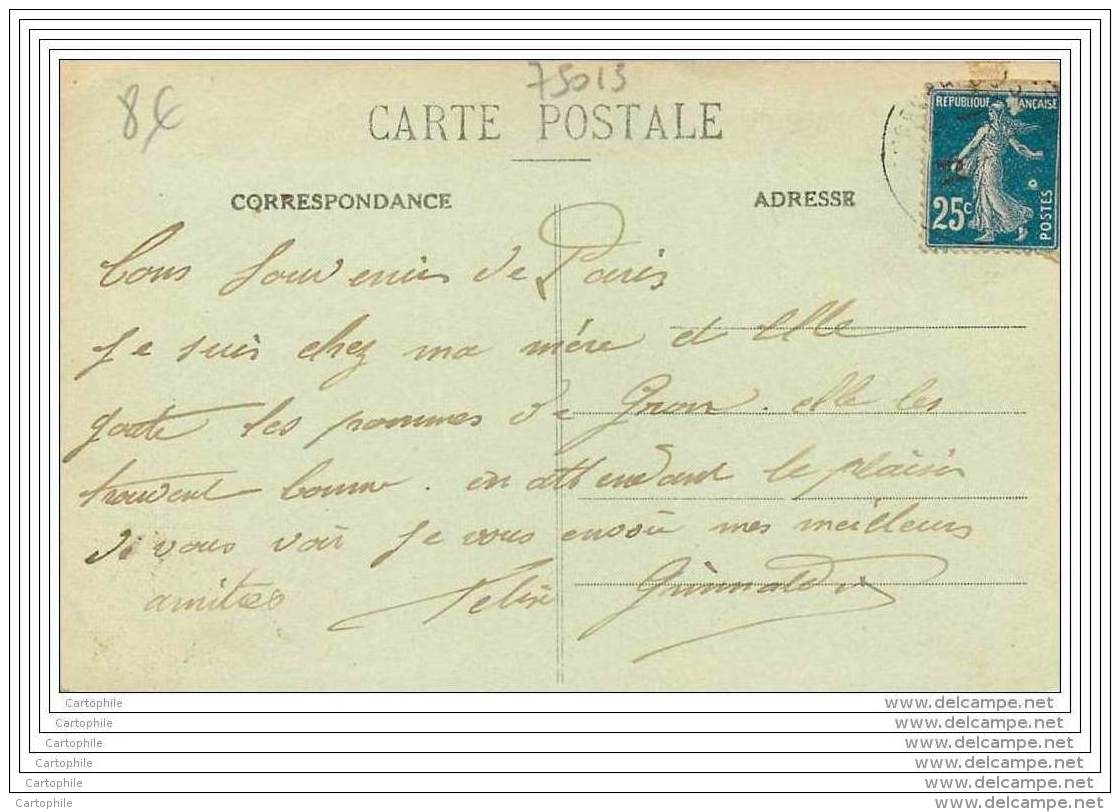 75013
8€
CARTE POSTALE
REPUBLIQUE FRANÇAISE
25c
POSTES
CORRESPONDANCE
ADRESSE
bons souvenirs de Paris
Je suis chez ma mère et elle
goute les pommes de Gron. elle les
trouvent bonne. en attendant le plaisir
de vous voir je vous envoie mes meilleurs
amities Felix Grimaldi
Cartophile
www.delcampe.net
Cartophile
www.delcampe.net
Cartophile
www.delcampe.net
Cartophile
www.delcampe.net
Cartophile
www.delcampe.net
Cartophile
www.delcampe.net